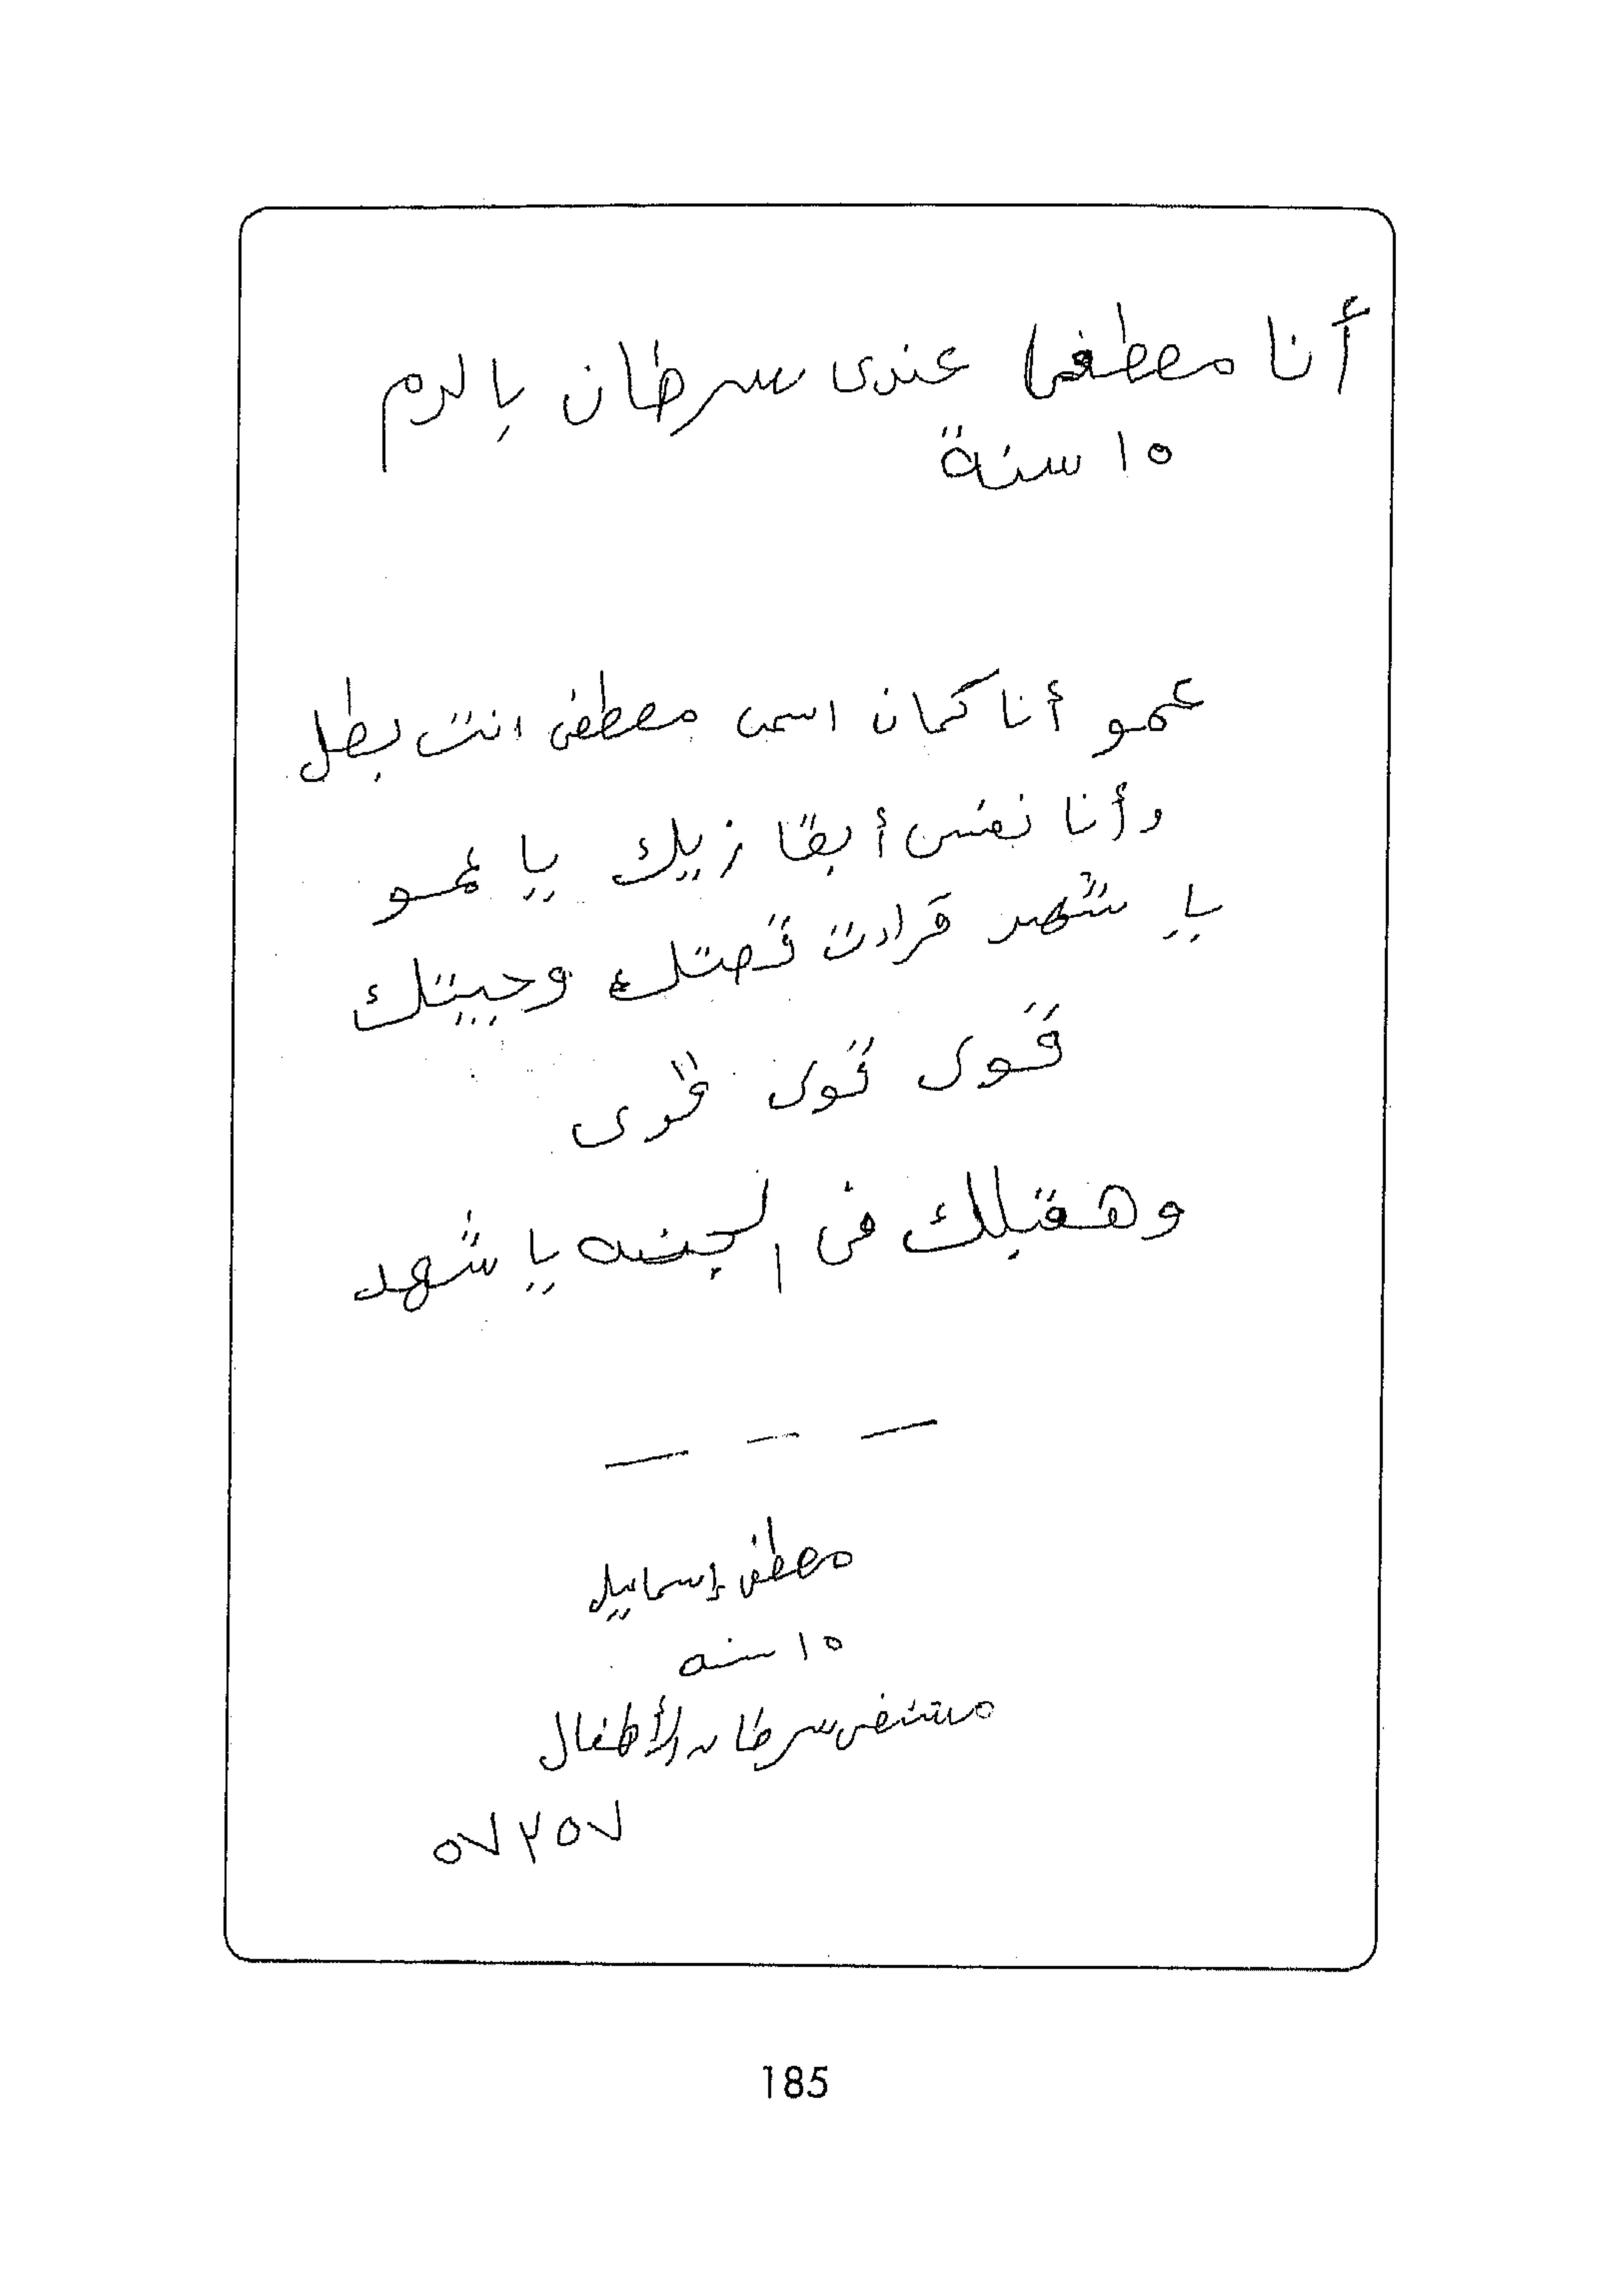 أنا مصطفى عندى سرطان بالدم
١٥ سنة
عمو أنا كمان اسمى مصطفى انت بطل
وأنا نفسى أبقا زيك يا عمو
يا شهد قرادت قصتك وحبيتك
قوى قوى قوى
وهقبلك فى الجنه يا شهد
مصطفى إسماعيل
١٥ سنه
مستشفى سرطان الأطفال
٥٧٣٥٧
185